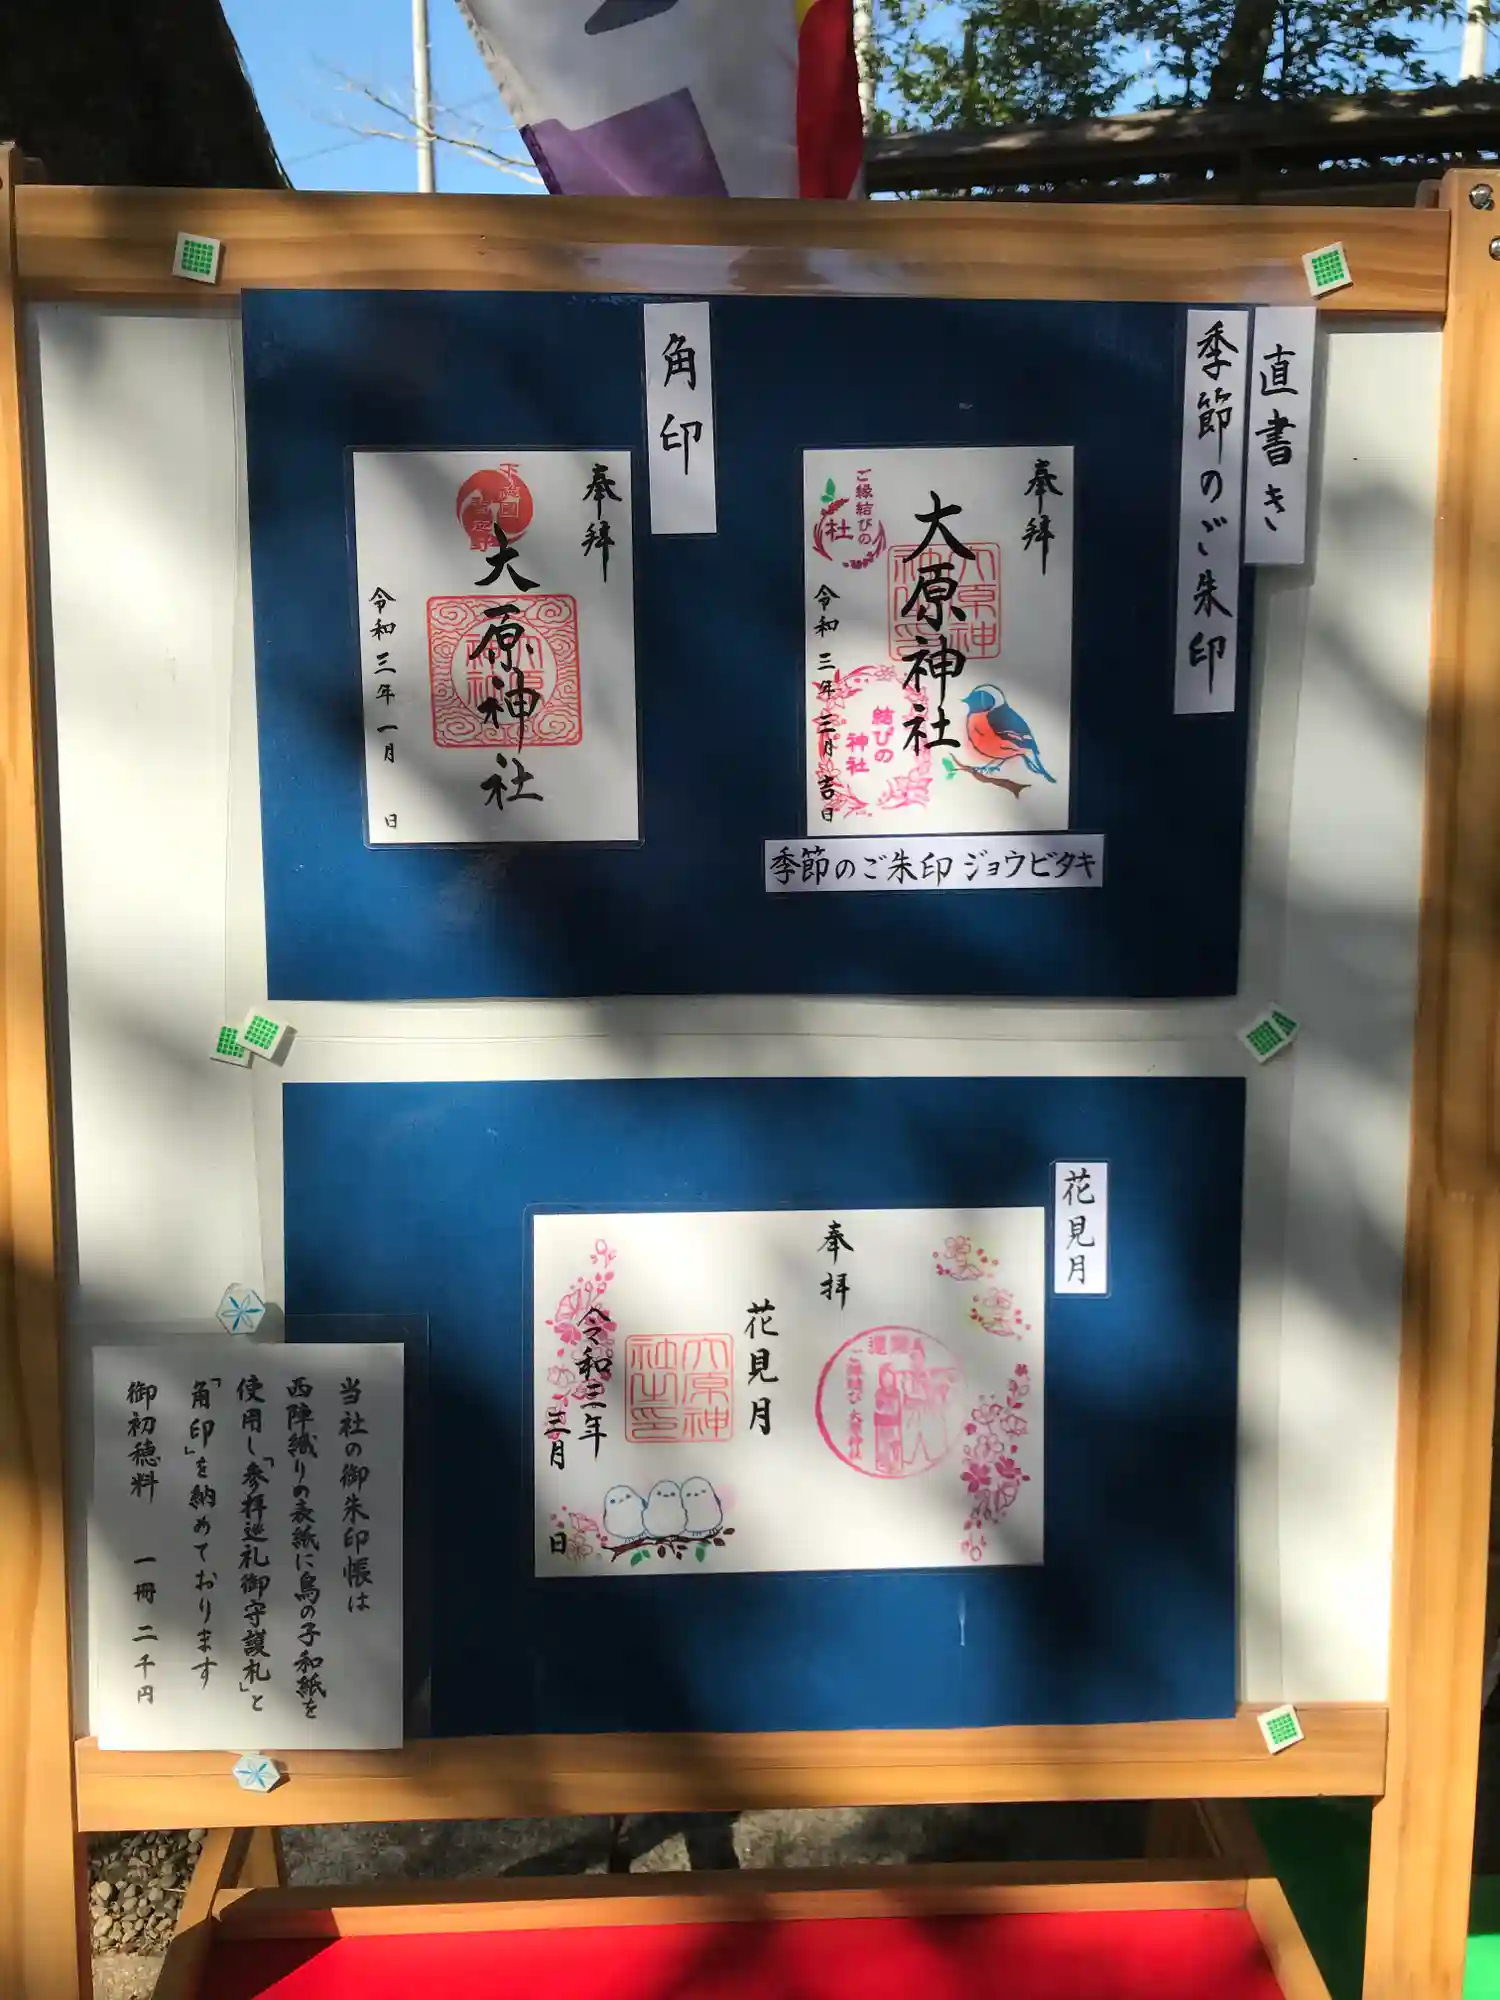 直書き
季節のご朱印
奉拝
大原神社
ご縁結びの
杜
結びの
神社
令和三年三月吉日
季節のご朱印 ジョウビタキ
角印
奉拝
下総国
大原神社
令和三年一月 日
花見月
奉拝
花見月
大原神
社之印
令和三年
三月 日
当社の御朱印帳は
西陣織りの表紙に鳥の子和紙を
使用し「参拝巡礼御守護札」と
「角印」を納めております
御初穂料 一冊 二千円